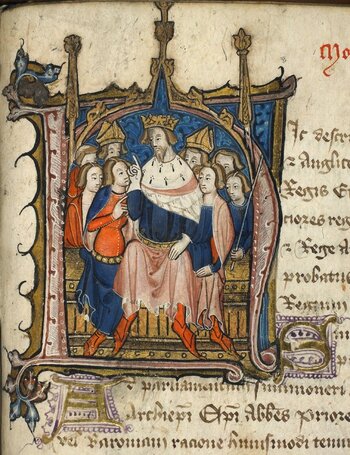 Mo
Ic descr
& Anglic
Regis E
ciores reg
& Rege A
probatus
Regnum
S
parliamentū summoneri
Archiepi Epi Abbes Priore
vel Baroniam racione huiusmodi tenu